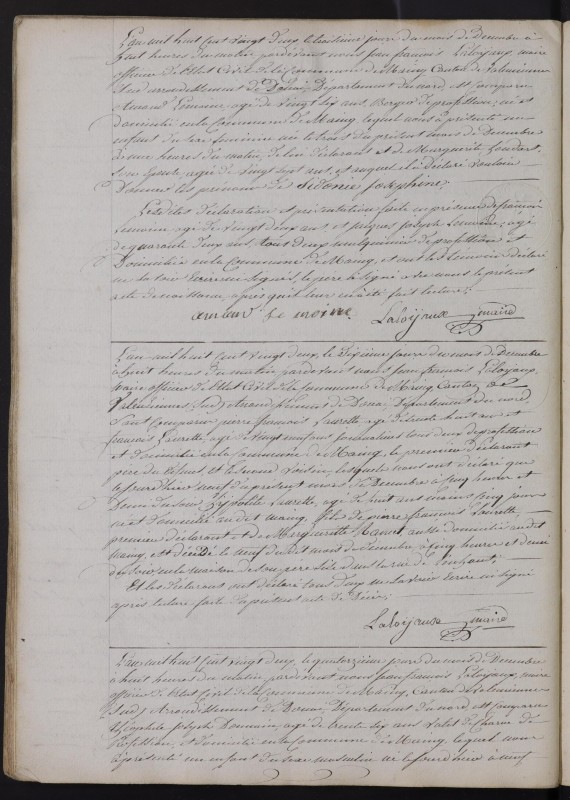 L'an mil huit cent vingt deux, le troisième jour du mois de Decembre à
huit heures du matin pardevant nous jean françois Laloyaux, maire
officier de l'Etat Civil de la Commune de Maing Canton de Valenciennes
Sud arrondissement de Douai, Département du nord est comparu
Amand Lemoine, agé de vingt six ans, Berger de profession, né et
domicilié en la commune de Maing, lequel nous à présenté un
enfant du sexe féminin né le trois du présent mois de Decembre
à une heures du matin, de lui déclarant et de Marguerite
son Epouse, agée de vingt sept ans, et auquel il à déclaré vouloir
Donner les prénoms de Sidonie Josephine;
Lesdites déclaration et présentation faite en présence de françois
Lemoine agé de vingt deux ans, et jacques joseph Lemoine, agé
de quarante deux ans, tout deux de profession et
Domiciliés en la Commune de Maing, et ont le témoin déclaré
ne savoir écrire ni signer, le père à signé avec nous le présent
acte de naissance, après qu'il leur en à été fait lecture;
amand le moine Laloijaux maire
L'an mil huit cent vingt deux, le dixième jour du mois de Decembre
à huit heures du matin pardevant nous jean françois Laloyaux,
Maire officier de l'Etat Civil de la commune de Maing Canton de
Valenciennes (Sud) Arrondissement de Douai, Département du nord
Sont comparus pierre françois Laurette, agé de trente huit ans et
françois Laurette, agé de vingt neuf ans tous deux de profession
et domiciliés en la commune de Maing, le premier déclarant
père du défunt, et le second voisin, lesquels nous ont déclaré que
le jour d'hier neuf du présent mois de Decembre à cinq heures et
Demie du soir, Hypolite Laurette, agé de huit ans moins cinq jours
né et domicilié audit Maing, fils de pierre françois Laurette,
premier déclarant et de Marguerite Manet, aussi domiciliés audit
Maing, est décédé le neuf dudit mois de Decembre à cinq heures et demi
du soir, en la maison de son père sise
Et les déclarans ont déclaré tous deux ne savoir écrire ni signer
après lecture faite du présent acte de Décès;
Laloijaux maire
L'an mil huit cent vingt deux, le quatorzième jour du mois de Decembre
à huit heures du matin, pardevant nous jean françois Laloyaux, maire
officier de l'Etat Civil de la commune de Maing, Canton de Valenciennes
(Sud) Arrondissement de Douai, Département du nord est comparu
Théophile joseph Demain, agé de trente six ans Valet de Charrue de
Profession, et domicilié en la Commune de Maing, lequel nous
à présenté un enfant du sexe masculin né le jour d'hier à neuf